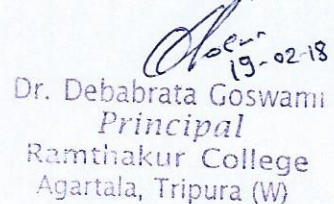 19-02-18
Dr. Debabrata Goswami
Principal
Ramthakur College
Agartala, Tripura (W)